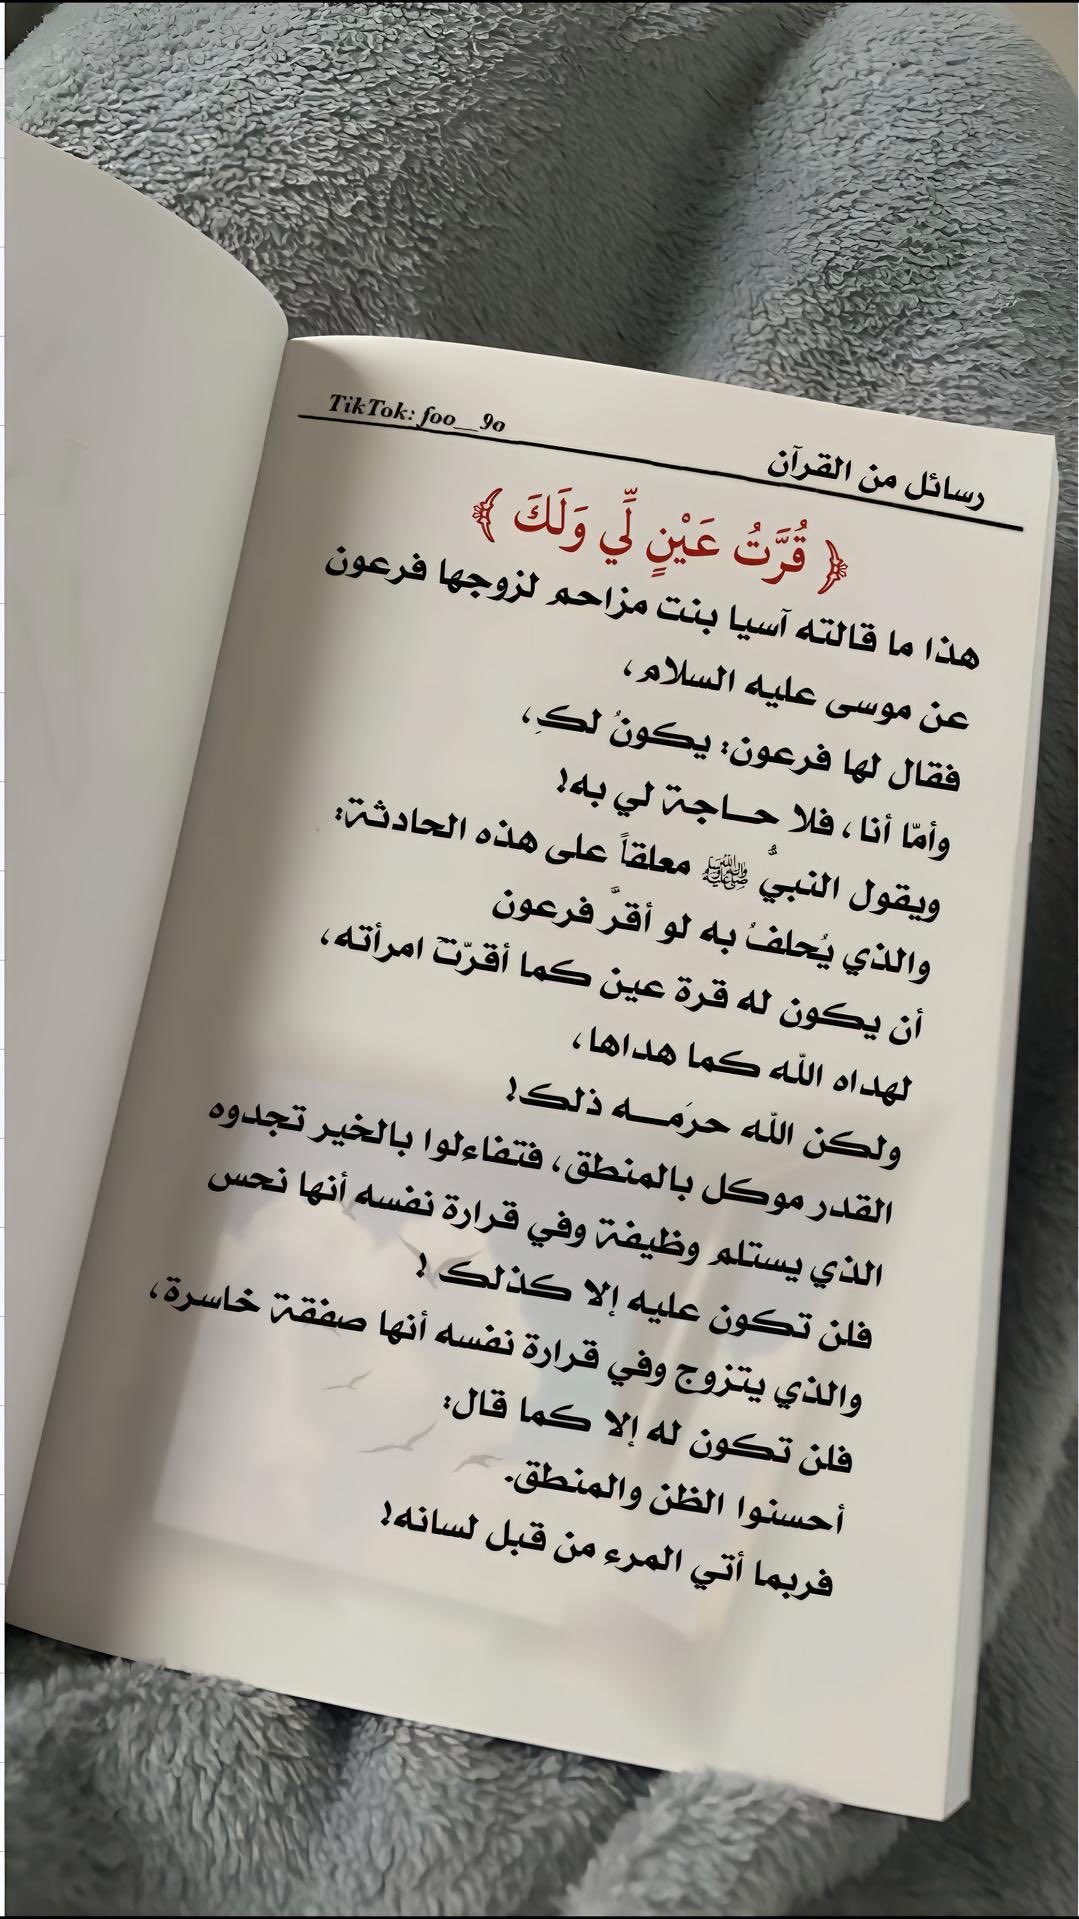 TikTok: foo__9o
رسائل من القرآن
﴿ قُرَّتُ عَيْنٍ لِّي وَلَكَ ﴾
هذا ما قالته آسيا بنت مزاحم لزوجها فرعون
عن موسى عليه السلام،
فقال لها فرعون: يكونُ لكِ،
وأمّا أنا، فلا حاجة لي به!
ويقول النبيُّ ﷺ معلقاً على هذه الحادثة:
والذي يُحلفُ به لو أقرَّ فرعون
أن يكون له قرة عين كما أقرّتْ امرأته،
لهداه الله كما هداها،
ولكن الله حرَمه ذلك!
القدر موكل بالمنطق، فتفاءلوا بالخير تجدوه
الذي يستلم وظيفة وفي قرارة نفسه أنها نحس
فلن تكون عليه إلا كذلك !
والذي يتزوج وفي قرارة نفسه أنها صفقة خاسرة،
فلن تكون له إلا كما قال:
أحسنوا الظن والمنطق.
فربما أتي المرء من قبل لسانه!